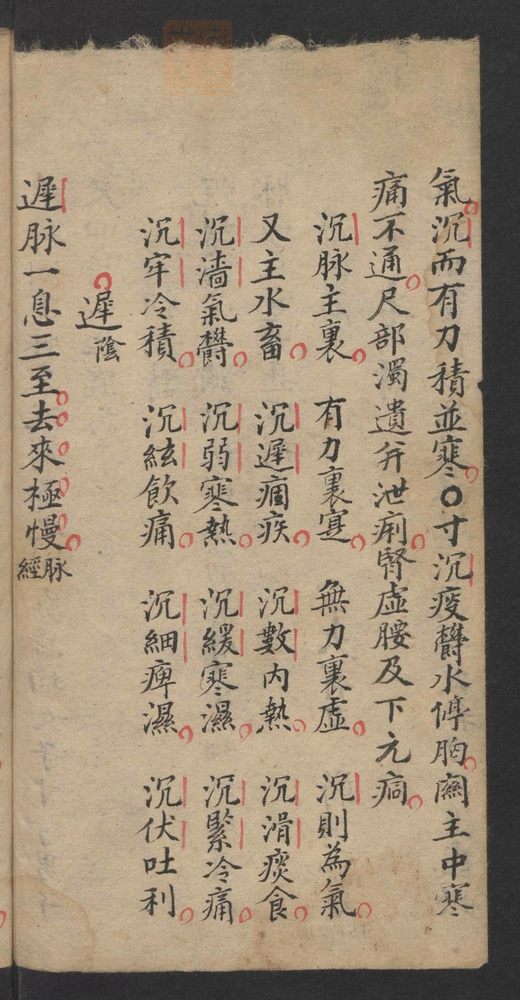 氣沉而有力積並寒○寸沉痰欝水停胸関主中寒
痛不通尺部濁遺并泄痢腎虛腰及下元痾
沉脉主裏 有力裏寔 無力裏虛 沉則為氣
又主水畜 沉遲痼疾 沉數内熱 沉滑痰食
沉濇氣欝 沉弱寒熱 沉緩寒濕 沉緊冷痛
沉牢冷積 沉絃飲痛 沉細痺濕 沉伏吐利
遲 陰
遲脉一息三至去來極慢 脉經